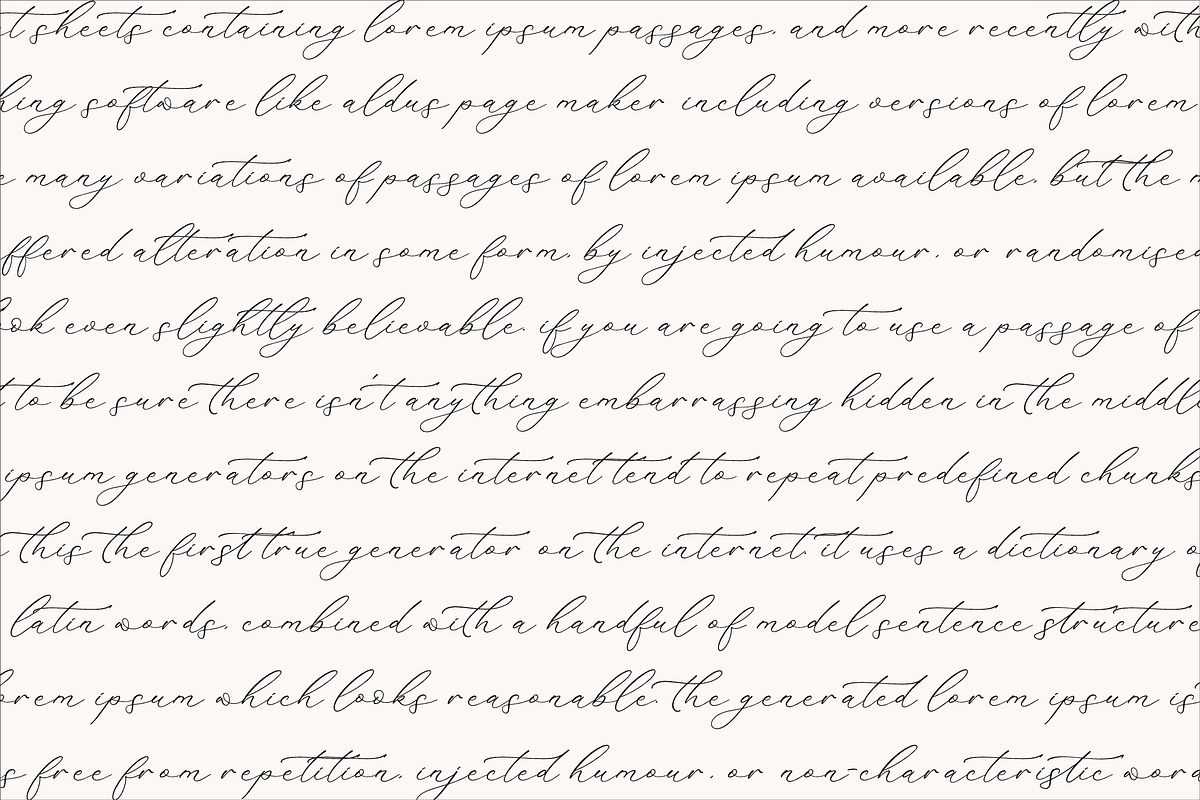 t sheets containing lorem ipsum passages. and more recently with
hing software like aldus page maker including versions of lorem
e many variations of passages of lorem ipsum available. but the m
ffered alteration in some form. by injected humour. or randomised
ook even slightly believable. if you are going to use a passage of
t to be sure there isn't anything embarrassing hidden in the middle
ipsum generators on the internet tend to repeat predefined chunks
this the first true generator on the internet. it uses a dictionary of
latin words. combined with a handful of model sentence structure
orem ipsum which looks reasonable. the generated lorem ipsum is
s free from repetition. injected humour. or non-characteristic word